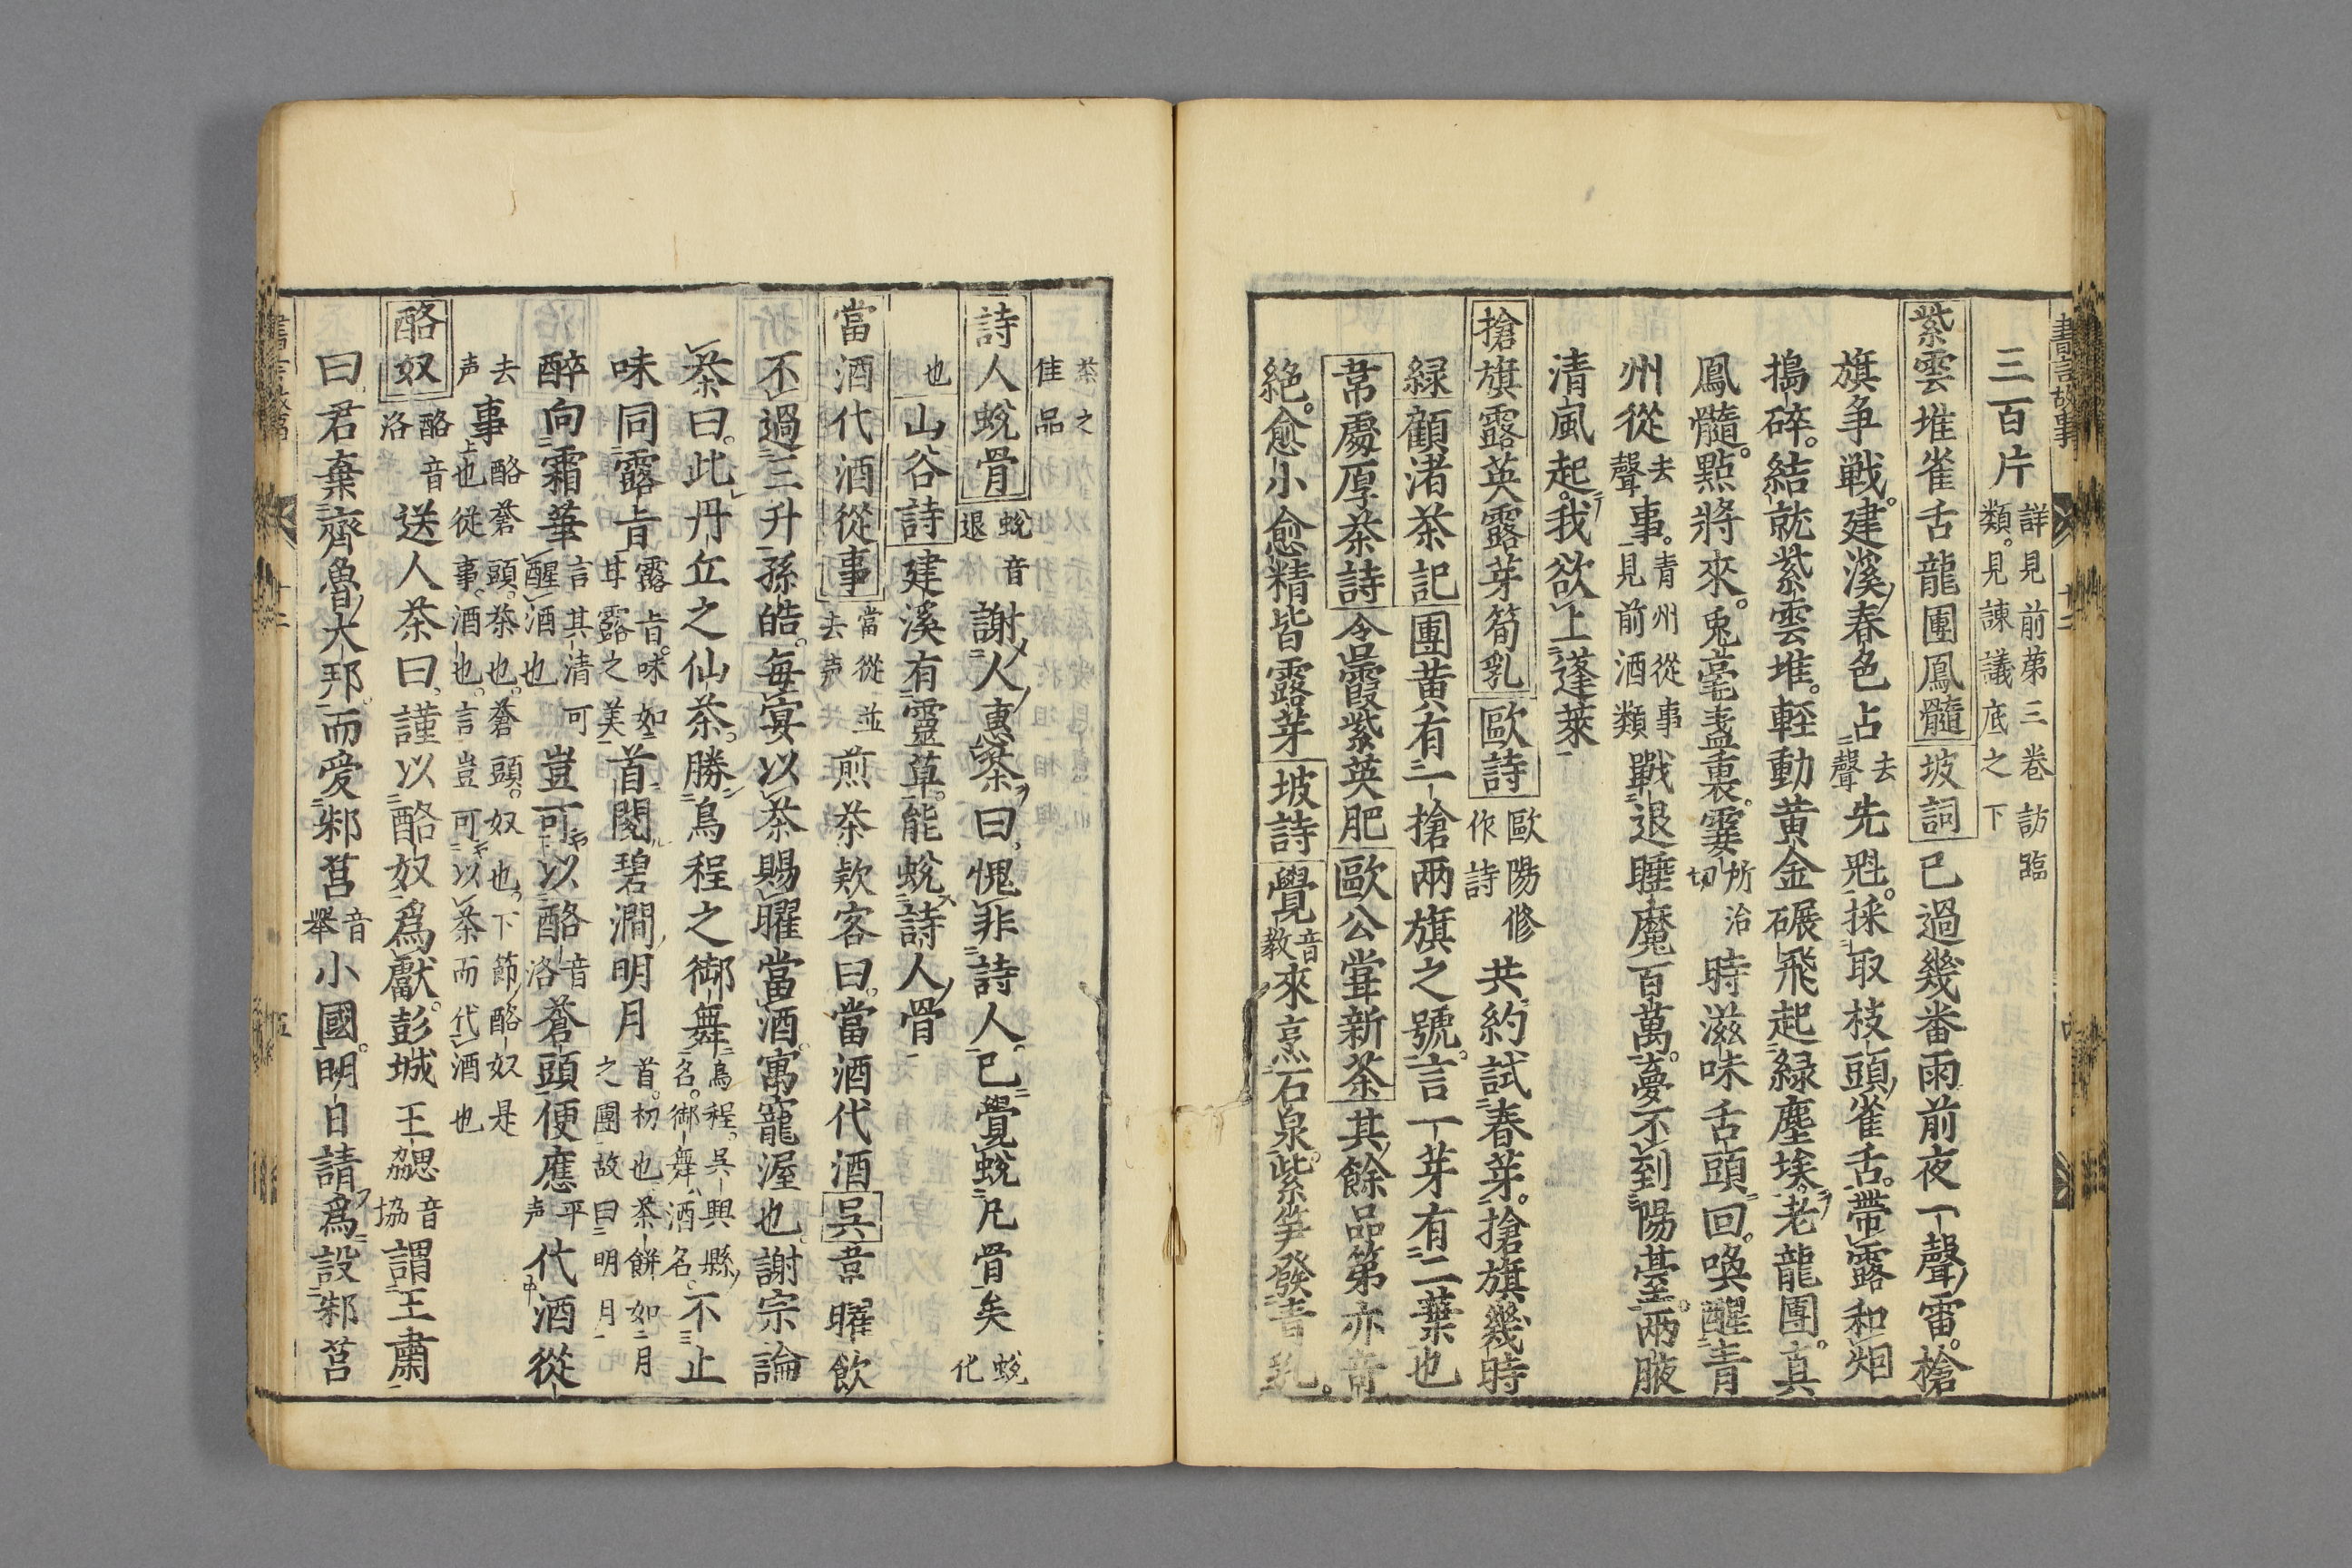 書言故事
三百片 詳見前第三卷訪臨類。見諫議底之下
紫雲堆雀舌龍團鳳髓 坡詞 已過幾番雨前夜一聲雷。槍
旗爭戰。建溪春色占 去聲 先魁。採取枝頭雀舌。帶露和烟
搗碎。結就紫雲堆。輕動黄金碾飛起緑塵埃。老龍團。真
鳳髓。點將來。兎毫盞裏。霎 所洽切 時滋味舌頭回。喚醒青
州從 去聲 事。青州從事見前酒類 戰退睡魔百萬。夢不到陽臺。兩腋
清風起。我欲上蓬萊
搶旗露英露芽筍乳 歐詩 歐陽修作詩 共約試春芽。搶旗幾時
緑 顧渚茶記 團黄有一搶兩旗之號。言一芽有二葉也
常處厚茶詩 含霞紫英肥 歐公嘗新茶 其餘品第亦奇
絶。愈小愈精皆露芽 坡詩 覺 音教 來烹石泉。紫笋發青乳。
茶之佳品
詩人蛻骨 蛻音退 謝人惠茶曰。愧非詩人。已覺蛻凡骨矣 蛻化
也 山谷詩 建溪有靈草。能蛻詩人骨
當酒代酒從事 當從並去声 煎茶欵客曰。當酒代酒 吳 韋曜飲
不過三升。孫皓。每宴以茶賜曜當酒。寓寵渥也。謝宗論
茶曰。此丹丘之仙茶。勝烏程之御舞 烏程。吳興縣名。御舞酒名。 不止
味同露旨 露旨。味如甘露之美 首閱碧澗明月 首。初也。茶餅如月之團故曰明月也
醉向霜華 言其清可醒酒也 豈可以酪 音洛 蒼頭便應 平声 代酒從
去声 事 酪蒼頭。茶也。蒼頭。奴也。下節酪奴是上也從事。酒也。言豈可以茶而代酒也
酪奴 酪音洛 送人茶曰。謹以酪奴爲獻。彭城王勰 音協 謂王肅
曰君棄齊魯大邦。而愛邾莒 音舉 小國。明日請爲設邾莒